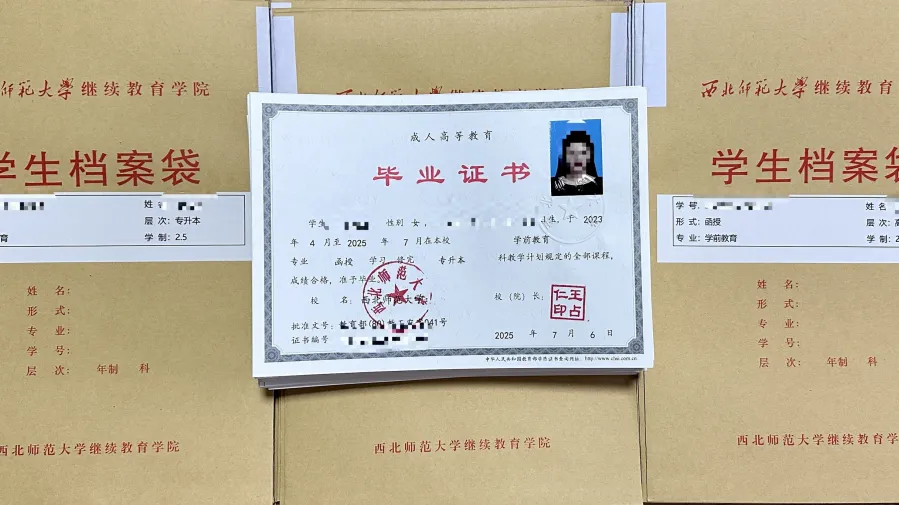 西北师范大学继续教育学院
学生档案袋
层 次：专升本
学 制：2.5
姓 名：
形 式：
专 业：
学 号：
层 次： 年制 科
西北师范大学继续教育学院
成人高等教育
毕业证书
学生 性别 女， 生，于 2023
年 4 月至 2025 年 7 月在本校 学前教育
专业 函授 学习，修完 专升本 科教学计划规定的全部课程，
成绩合格，准予毕业。
校 名：西北师范大学 校（院）长：
王占仁印
批准文号：教育部 041号
证书编号 2025 年 7 月 6 日
中华人民共和国教育部学历证书查询网址：http://www.chsi.com.cn
西北师范大学继续教育学院
西北师范大学继续教育学院
学生档案袋
学 号：
形 式：函授
专 业：学前教育
姓 名
层 次：
学 制：2
姓 名：
形 式：
专 业：
学 号：
层 次： 年制 科
西北师范大学继续教育学院